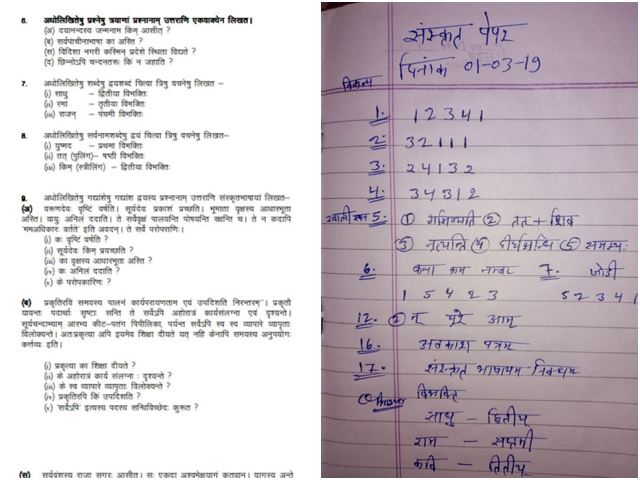 6. अधोलिखितेषु प्रश्नेषु त्रयाणां प्रश्नानाम् उत्तराणि एकवाक्येन लिखत।
(अ) दयानन्दस्य जन्मनाम किम् आसीत् ?
(ब) सर्वप्राचीनाभाषा का अस्ति ?
(स) विदिशा नगरी कस्मिन् प्रदेशे स्थिता विद्यते ?
(द) छिन्नोऽपि चन्दनतरूः किं न जहाति ?
7. अधोलिखितेषु शब्देषु द्वयशब्दं चित्वा त्रिषु वचनेषु लिखत –
(i) साधु – द्वितीया विभक्तिः
(ii) रमा – तृतीया विभक्तिः
(iii) राजन् – पंचमी विभक्तिः
8. अधोलिखितेषु सर्वनामशब्देषु द्वयं चित्वा त्रिषु वचनेषु लिखत–
(i) युष्मद – प्रथमा विभक्तिः
(ii) तत् (पुलिंग)– षष्ठी विभक्तिः
(iii) किम् (स्त्रीलिंग) – द्वितीया विभक्तिः
9. अधोलिखितेषु गद्यांशेषु गद्यांश द्वयस्य प्रश्नानाम् उत्तराणि संस्कृतभाषायां लिखत–
(अ) वरूणदेवः वृष्टिं वर्षति। सूर्यदेवः प्रकाशं प्रच्छति। भूमाता वृक्षस्य आधारभूता
अस्ति। वायुः अनिलं ददाति। ते सर्ववृक्षं पालयन्ति पोषयन्ति रक्षन्ति च। ते न कदापि
'ममअधिकारः वर्तते' इति अवदन्। ते सर्वे परोपरणिः।
(i) कः वृष्टिं वर्षति ?
(ii) सूर्यदेवः किम् प्रयच्छति ?
(iii) का वृक्षस्य आधारभूता अस्ति ?
(iv) कः अनिलं ददाति ?
(v) के परोपकारिणः ?
(ब) प्रकृतिरवि समयस्य पालनं कार्यपरायणताम् एवं उपदिशति निरन्तरम्। प्रकृतौ
यावन्तः पदार्थाः सृष्टाः सन्ति ते सर्वेऽपि अहोरात्रं कार्यसंलग्ना एवं दृश्यन्ते।
सूर्यचन्द्राभ्याम् आरभ्य कीट–पतंग पिपीलिका, पर्यन्त सर्वेऽपि स्व स्व व्यापारे व्यापृताः
विलोक्यन्ते। अतःप्रकृत्या अपि इयमेव शिक्षा दीयते यत् नहि केनापि समयस्य अनुपयोगः
कर्त्तव्यः इति।
(i) प्रकृत्या का शिक्षा दीयते ?
(ii) के अहोरात्रं कार्य संलग्नाः दृश्यन्ते ?
(iii) के स्व व्यापारे व्यापृताः विलोक्यन्ते ?
(iv) प्रकृतिरपि किं उपदिशति ?
(v) 'सर्वेऽपि' इत्यस्य पदस्य सन्धिविच्छेदः कुरूत ?
(स) सूर्यवंशस्य राजा सगरः आसीत्। सः एकदा अश्वमेधयागं कृतवान्। यागस्य अन्ते
संस्कृत पेपर
दिनांक 01-03-19
विकल्प
1. 1 2 3 4 1
2. 3 2 1 1 1
3. 2 4 1 3 2
4. 3 4 3 1 2
5. ① ② तत् + शिव
③ नृत्यन्ति ④ ⑤ समस्यः
6. क्रम नम्बर 7. जोड़ी
1 5 4 2 3 5 2 3 4 1
12. ② न आम्
16. अवकाश पत्रम्
17. संस्कृत भाषायाम निबन्धम
विभक्ति
साधु – द्वितीय
राम – सप्तमी
कवि – तृतीय